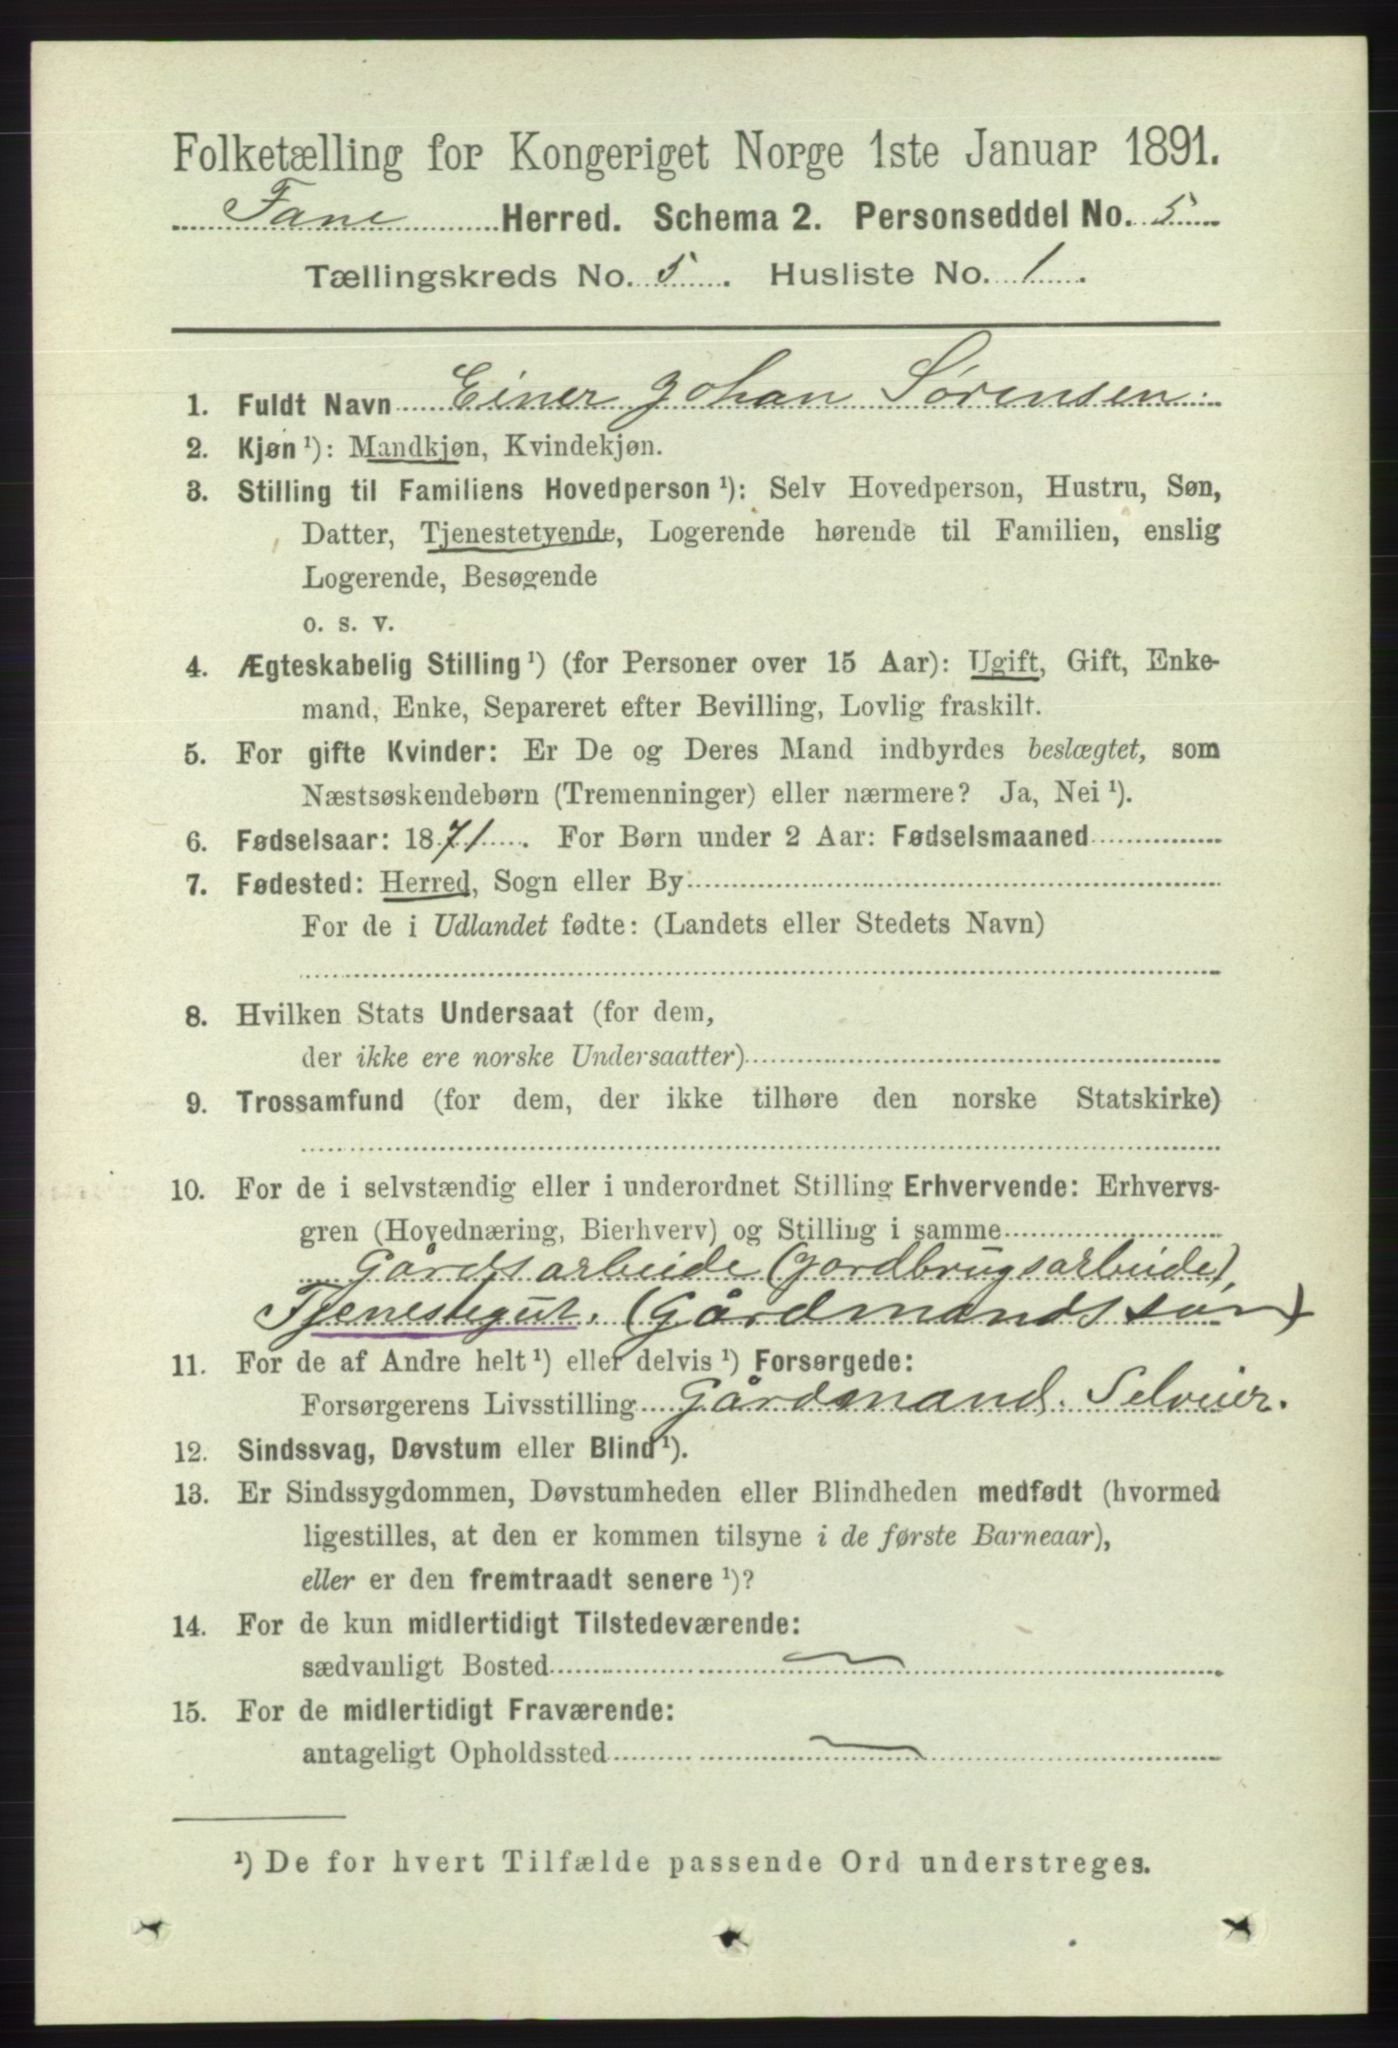 Folketælling for Kongeriget Norge 1ste Januar 1891.
Fane Herred. Schema 2. Personseddel No. 5
Tællingskreds No. 5. Husliste No. 1.
1. Fuldt Navn Einer Johan Sørensen.
2. Kjøn ¹): Mandkjøn, Kvindekjøn.
3. Stilling til Familiens Hovedperson ¹): Selv Hovedperson, Hustru, Søn,
Datter, Tjenestetyende, Logerende hørende til Familien, enslig
Logerende, Besøgende
o. s. v.
4. Ægteskabelig Stilling ¹) (for Personer over 15 Aar): Ugift, Gift, Enke-
mand, Enke, Separeret efter Bevilling, Lovlig fraskilt.
5. For gifte Kvinder: Er De og Deres Mand indbyrdes beslægtet, som
Næstsøskendebørn (Tremenninger) eller nærmere? Ja, Nei ¹).
6. Fødselsaar: 1871. For Børn under 2 Aar: Fødselsmaaned
7. Fødested: Herred, Sogn eller By
For de i Udlandet fødte: (Landets eller Stedets Navn)
8. Hvilken Stats Undersaat (for dem,
der ikke ere norske Undersaatter)
9. Trossamfund (for dem, der ikke tilhøre den norske Statskirke)
10. For de i selvstændig eller i underordnet Stilling Erhvervende: Erhvervs-
gren (Hovednæring, Bierhverv) og Stilling i samme
Gårdsarbeide (jordbrugsarbeide),
Tjenestegut. (Gårdmandssøn)
11. For de af Andre helt ¹) eller delvis ¹) Forsørgede:
Forsørgerens Livsstilling Gårdmand. Selveier.
12. Sindssvag, Døvstum eller Blind ¹).
13. Er Sindssygdommen, Døvstumheden eller Blindheden medfødt (hvormed
ligestilles, at den er kommen tilsyne i de første Barneaar),
eller er den fremtraadt senere ¹)?
14. For de kun midlertidigt Tilstedeværende:
sædvanligt Bosted
15. For de midlertidigt Fraværende:
antageligt Opholdssted
¹) De for hvert Tilfælde passende Ord understreges.